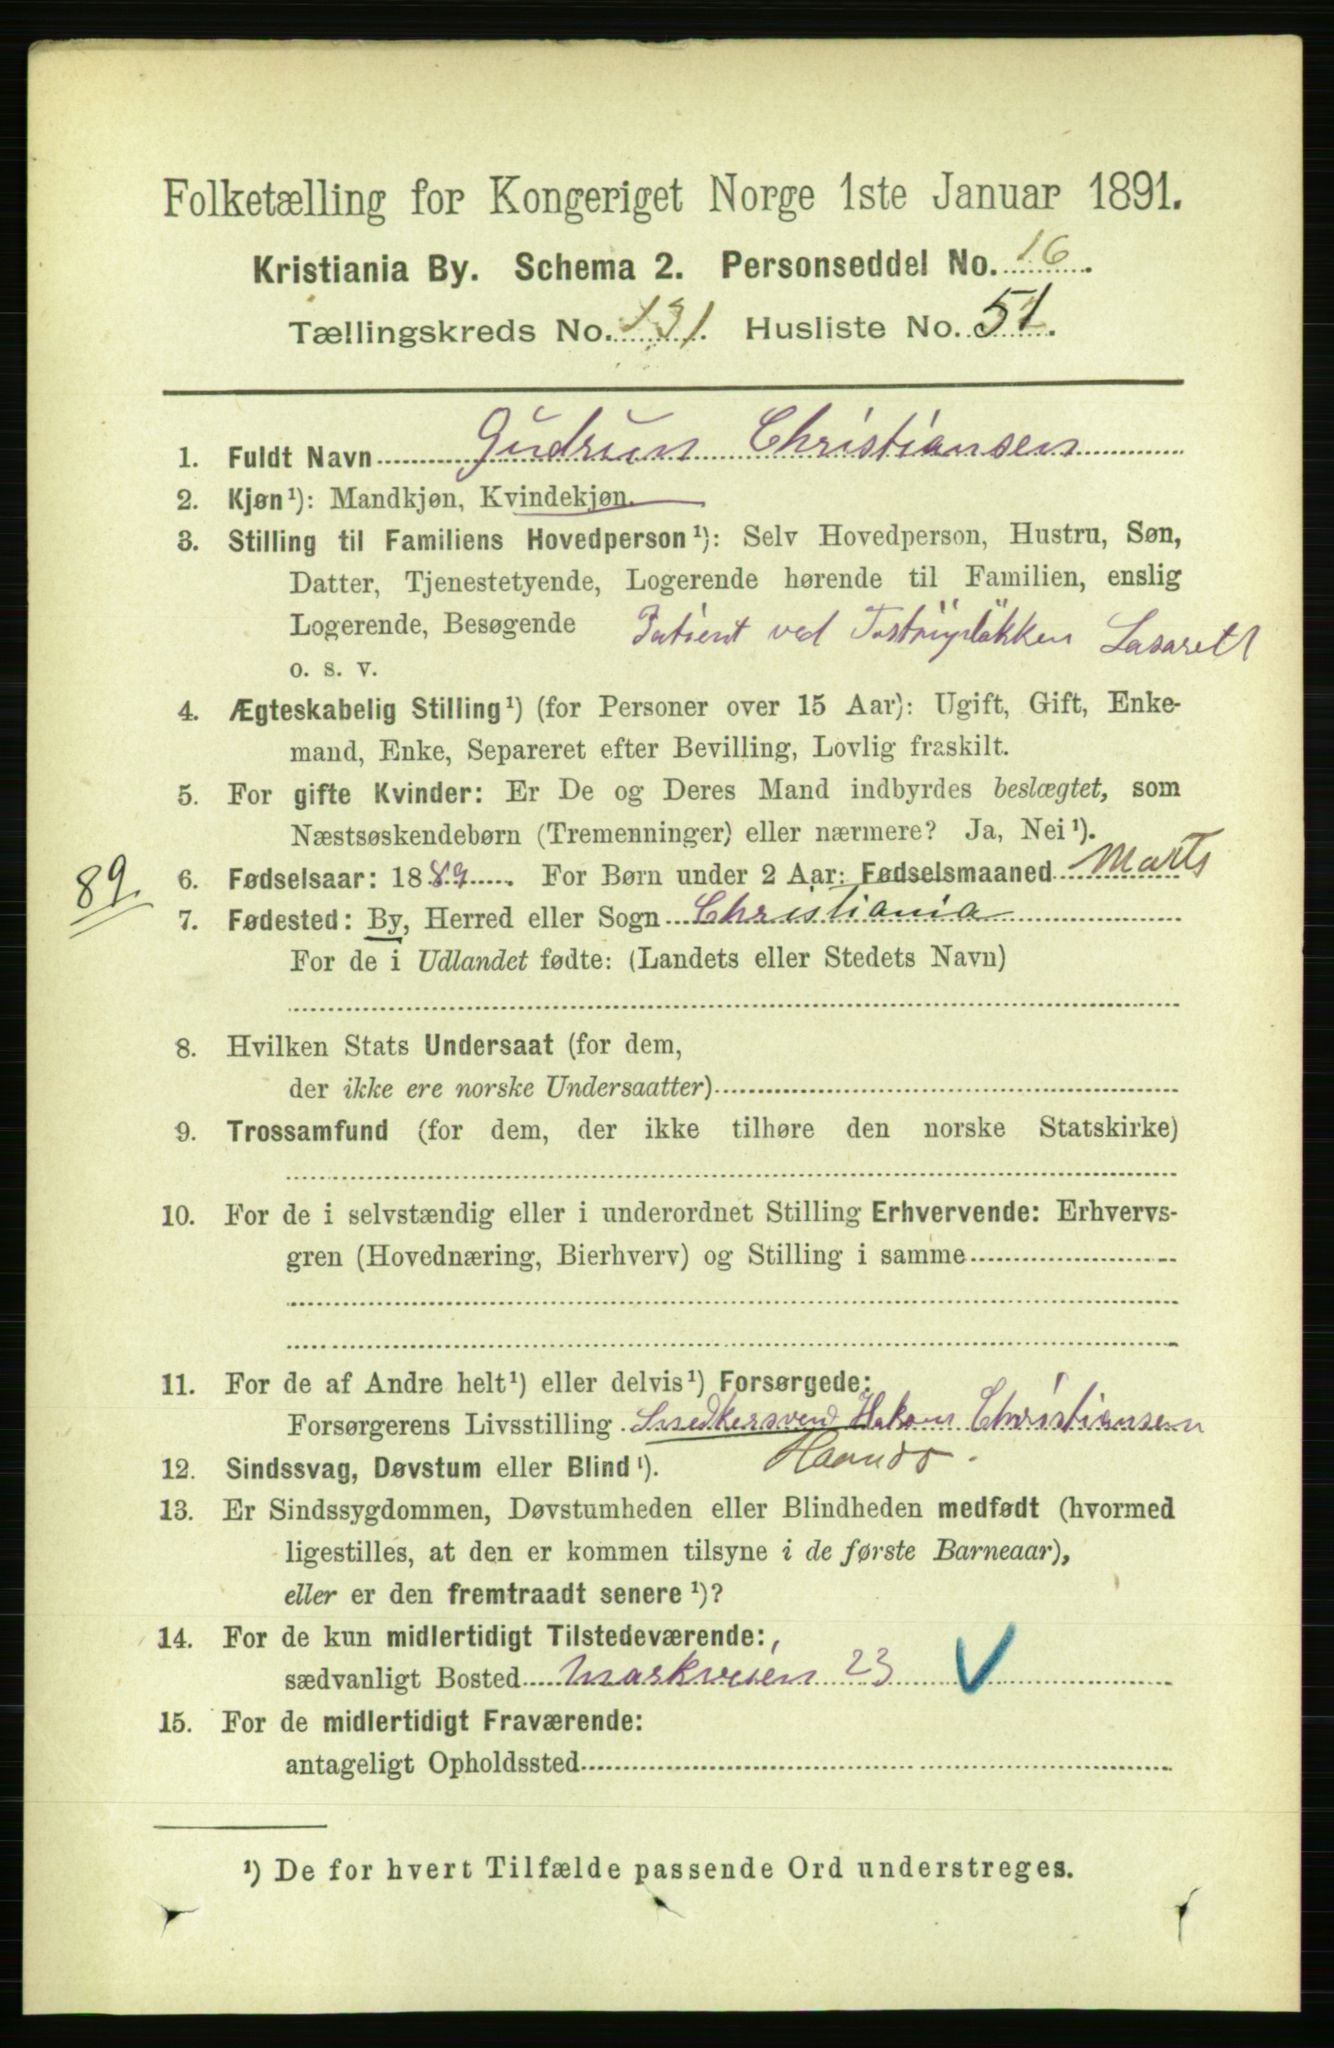 Folketælling for Kongeriget Norge 1ste Januar 1891.
Kristiania By. Schema 2. Personseddel No. 16.
Tællingskreds No. 131. Husliste No. 51.
1. Fuldt Navn Gudrun Christiansen
2. Kjøn¹): Mandkjøn, Kvindekjøn.
3. Stilling til Familiens Hovedperson¹): Selv Hovedperson, Hustru, Søn,
Datter, Tjenestetyende, Logerende hørende til Familien, enslig
Logerende, Besøgende Patient ved Lasarett
o. s. v.
4. Ægteskabelig Stilling¹) (for Personer over 15 Aar): Ugift, Gift, Enke-
mand, Enke, Separeret efter Bevilling, Lovlig fraskilt.
5. For gifte Kvinder: Er De og Deres Mand indbyrdes beslægtet, som
Næstsøskendebørn (Tremenninger) eller nærmere? Ja, Nei¹).
89.
6. Fødselsaar: 1889. For Børn under 2 Aar: Fødselsmaaned Marts
7. Fødested: By, Herred eller Sogn Christiania
For de i Udlandet fødte: (Landets eller Stedets Navn)
8. Hvilken Stats Undersaat (for dem,
der ikke ere norske Undersaatter)
9. Trossamfund (for dem, der ikke tilhøre den norske Statskirke)
10. For de i selvstændig eller i underordnet Stilling Erhvervende: Erhvervs-
gren (Hovednæring, Bierhverv) og Stilling i samme
11. For de af Andre helt¹) eller delvis¹) Forsørgede:
Forsørgerens Livsstilling Snedkersvend Hakon Christiansen
12. Sindssvag, Døvstum eller Blind¹).
13. Er Sindssygdommen, Døvstumheden eller Blindheden medfødt (hvormed
ligestilles, at den er kommen tilsyne i de første Barneaar),
eller er den fremtraadt senere¹)?
14. For de kun midlertidigt Tilstedeværende:
sædvanligt Bosted Markveien 23
15. For de midlertidigt Fraværende:
antageligt Opholdssted
¹) De for hvert Tilfælde passende Ord understreges.